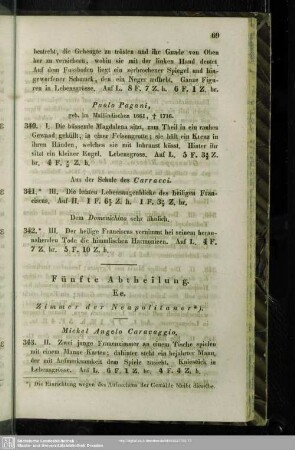 69
bestrebt, die Gebeugte zu trösten und ihr Gnade von Oben
her zu versichern, wohin sie mit der linken Hand deutet.
Auf dem Fussboden liegt ein zerbrochener Spiegel und hin-
geworfener Schmuck, den ein Neger aufhebt. Ganze Figu-
ren in Lebensgrösse. Auf L. 8 F. 7 Z. h. 6 F. 1 Z. br.
Paolo Pagani,
geb. im Mailändischen 1661, † 1716.
340. I. Die büssende Magdalena sitzt, zum Theil in ein rothes
Gewand gehüllt, in einer Felsengrotte; sie hält ein Kreuz in
ihren Händen, welches sie mit Inbrunst küsst. Hinter ihr
sitzt ein kleiner Engel. Lebensgross. Auf L. 5 F. 3½ Z.
br. 4 F. Z. h.
Aus der Schule des Carracci.
341.* III. Die letzten Lebensaugenblicke des heiligen Fran-
ciscus. Auf H. 1 F. 6½ Z. h. 1 F. 3½ Z. br.
Dem Domenichino sehr ähnlich.
342.* III. Der heilige Franciscus vernimmt bei seinem heran-
nahenden Tode die himmlischen Harmonieen. Auf L. 4 F.
7 Z. br. 5 F. 10 Z. h.
Fünfte Abtheilung.
Ee.
Zimmer der Neapolitaner*).
Michel Angelo Caravaggio,
343. II. Zwei junge Frauenzimmer an einem Tische spielen
mit einem Manne Karten; dahinter steht ein bejahrter Mann,
der mit Aufmerksamkeit dem Spiele zusieht. Kniestück in
Lebensgrösse. Auf L. 6 F. 1 Z. br. 4 F. 4 Z. h.
*) Die Einrichtung wegen des Aufsuchens der Gemälde bleibt dieselbe.